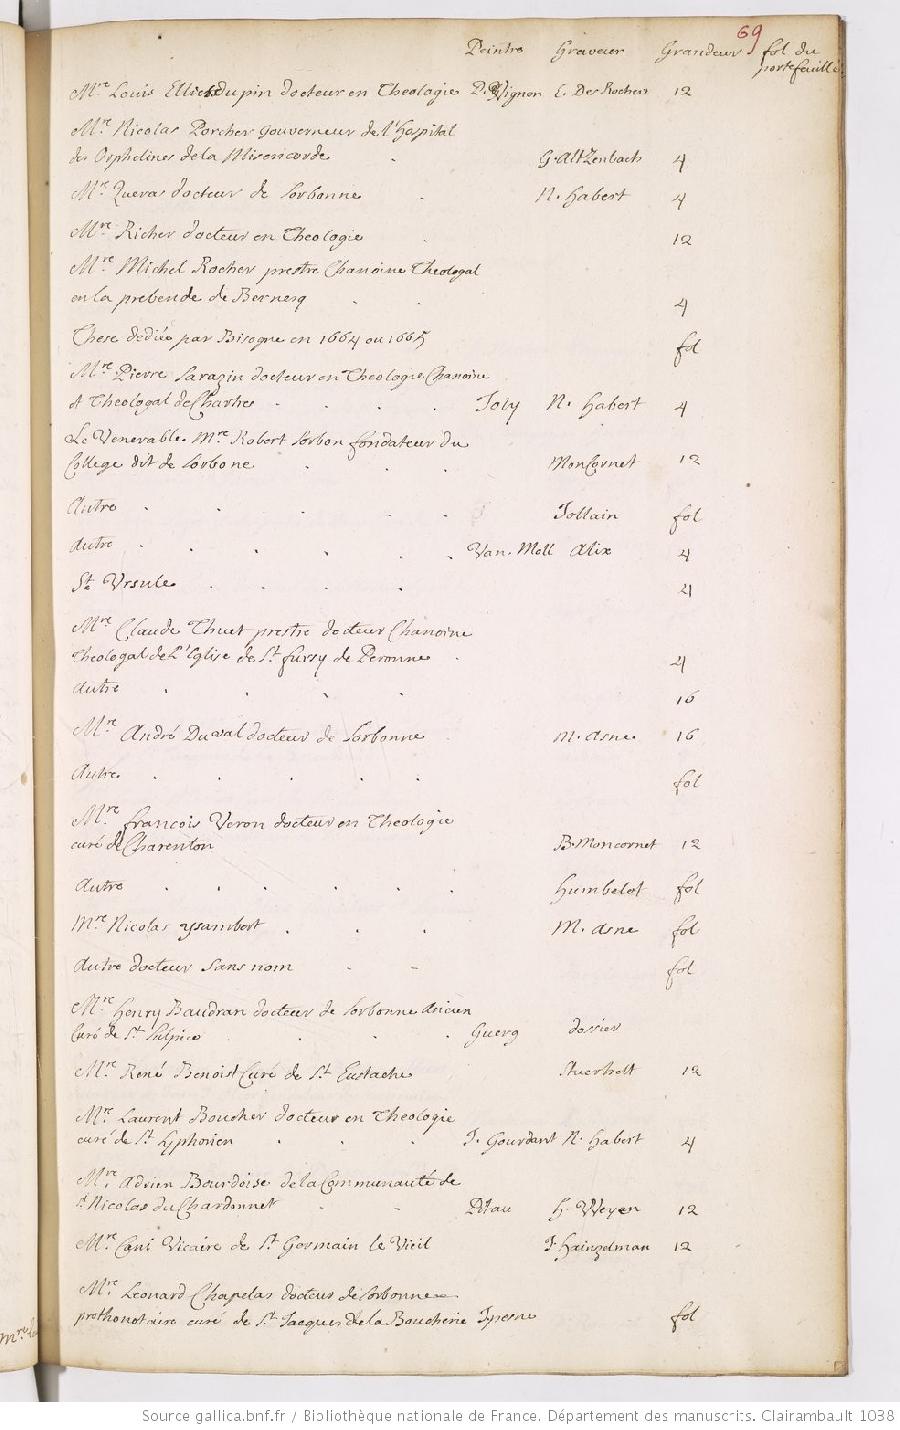 69
Peintre Graveur Grandeur fol. du
portefeuille
Mre. Louis Ellies dupin docteur en Theologie P. Vignon E. Des Rochers 12
Mre. Nicolas Porcher gouverneur de l'hospital
des Orphelines de la Misericorde . G. Altzenbach 4
Mre. Queras docteur de Sorbonne . N. habert 4
Mre. Richer docteur en Theologie . 12
Mre. Michel Rocher prestre Chanoine Theologal
en la prebende de . . 4
These dediée par Bisogne en 1664 ou 1665 fol
Mre. Pierre Sarazin docteur en Theologie Chanoine
et Theologal de Chartres . . . . Joly N. habert 4
Le Venerable Mre. Robert Sorbon fondateur du
College dit de Sorbone . . . Moncornet 12
Autre . . . . . Jollain fol
Autre . . . . . . Van. Moll alix 4
Ste. Vrsule . . . . 4
Mre. Claude Thuet prestre docteur Chanoine
Theologal de L'Eglise de St. fursy de Peronne . 4
Autre . . . . 16
Mre. André Duval docteur de Sorbonne . M. asne 16
Autre . . . . . fol
Mre. francois Veron docteur en Theologie
curé de Charenton B. Moncornet 12
Autre . . . . . . humbelot fol
Mre. Nicolas ysambert . . . M. asne fol
Autre docteur sans nom . - fol
Mre. henry Baudran docteur de Sorbonne Ancien
Curé de St. Sulpice . . . Guerg dossier
Mre. René Benoist Curé de St. Eustache . Stuerhelt 12
Mre. Laurent Boucher docteur en Theologie
curé de St. . . . J. Gourdant N. habert 4
Mre. Adrien Bourdoise de la Communauté de
St. Nicolas du Chardonnet . - Pitau h. Weyen 12
Mre. Cani Vicaire de St. Germain le Vieil J. hainzelman 12
Mre. Leonard Chapelas docteur de Sorbonne
prothonotaire curé de St. Jacques de la Boucherie fol
Mre. la
Source gallica.bnf.fr / Bibliothèque nationale de France. Département des manuscrits. Clairambault 1038